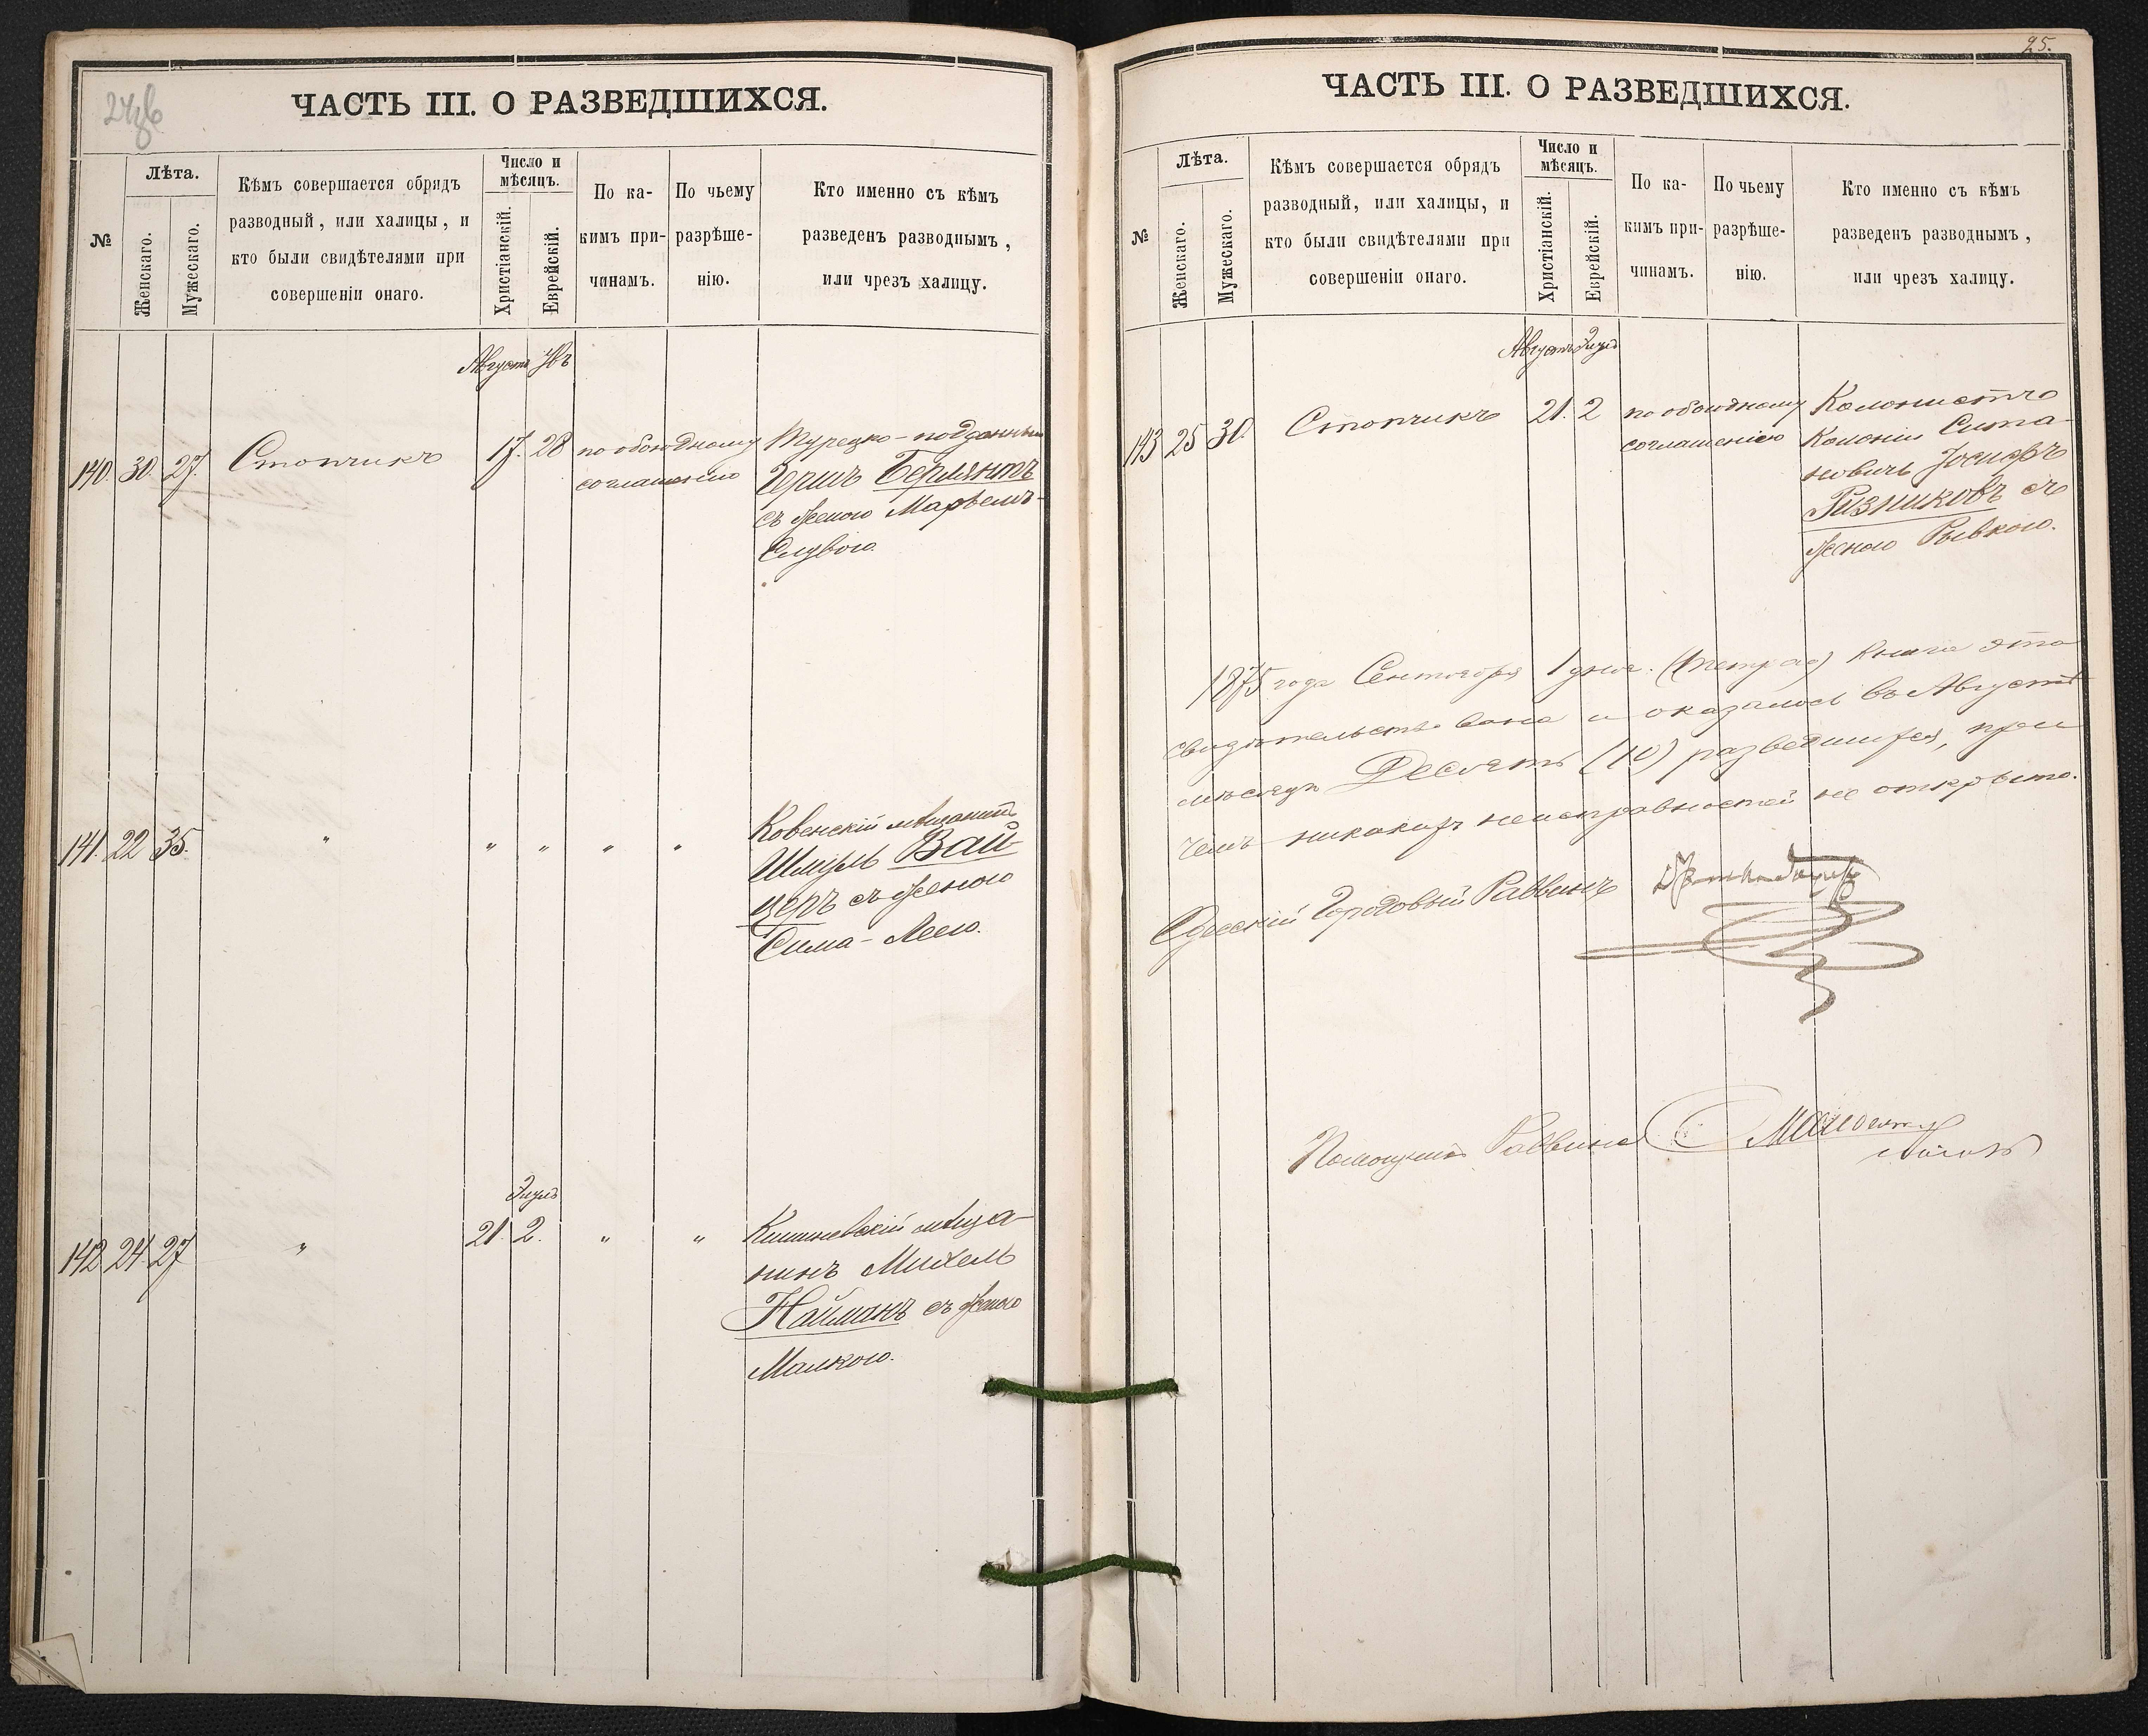 ЧАСТЬ III. О РАЗВЕДШИХСЯ.
№
Лѣта.
Женскаго.
Мужескаго.
Кѣмъ совершается обрядъ
разводный, или халицы, и
кто были свидѣтелями при
совершеніи онаго.
Число и
мѣсяцъ.
Христіанскій.
Еврейскій.
По ка-
кимъ при-
чинамъ.
По чьему
разрѣше-
нію.
Кто именно съ кѣмъ
разведенъ разводнымъ,
или чрезъ халицу.
Августъ Збъ
140. 30. 27. Стопчикъ 17. 28 по обоюдному
соглашенію
Турецко-подданный
Гершъ Берлянтъ
съ женою
141. 22 35. " " " " "
Ковенскій мѣщанинъ
Шмуль Вай-
церъ съ женою
Сима-Леею.
Элулъ
142 24 27 " 21. 2. " "
Кишиневскій мѣща-
нинъ Михель
Найманъ съ женою
Малкою.
25.
ЧАСТЬ III. О РАЗВЕДШИХСЯ.
№
Лѣта.
Женскаго.
Мужескаго.
Кѣмъ совершается обрядъ
разводный, или халицы, и
кто были свидѣтелями при
совершеніи онаго.
Число и
мѣсяцъ.
Христіанскій.
Еврейскій.
По ка-
кимъ при-
чинамъ.
По чьему
разрѣше-
нію.
Кто именно съ кѣмъ
разведенъ разводнымъ,
или чрезъ халицу.
Августъ Элулъ
143 25 30. Стопчикъ 21. 2 по обоюдному
соглашенію
Колонистъ
Колоніи Сита-
новичъ Іосифъ
Ризниковъ съ
женою Рывкою.
1875 года Сентября 1 дня. (тетрадь) Книга эта
свидѣтельствована и оказалось въ Августѣ
мѣсяцѣ Десять (10) разведшихся, при
чемъ никакихъ неисправностей не открыто.
Одесскій Городовой Раввинъ
Помощникъ Раввина